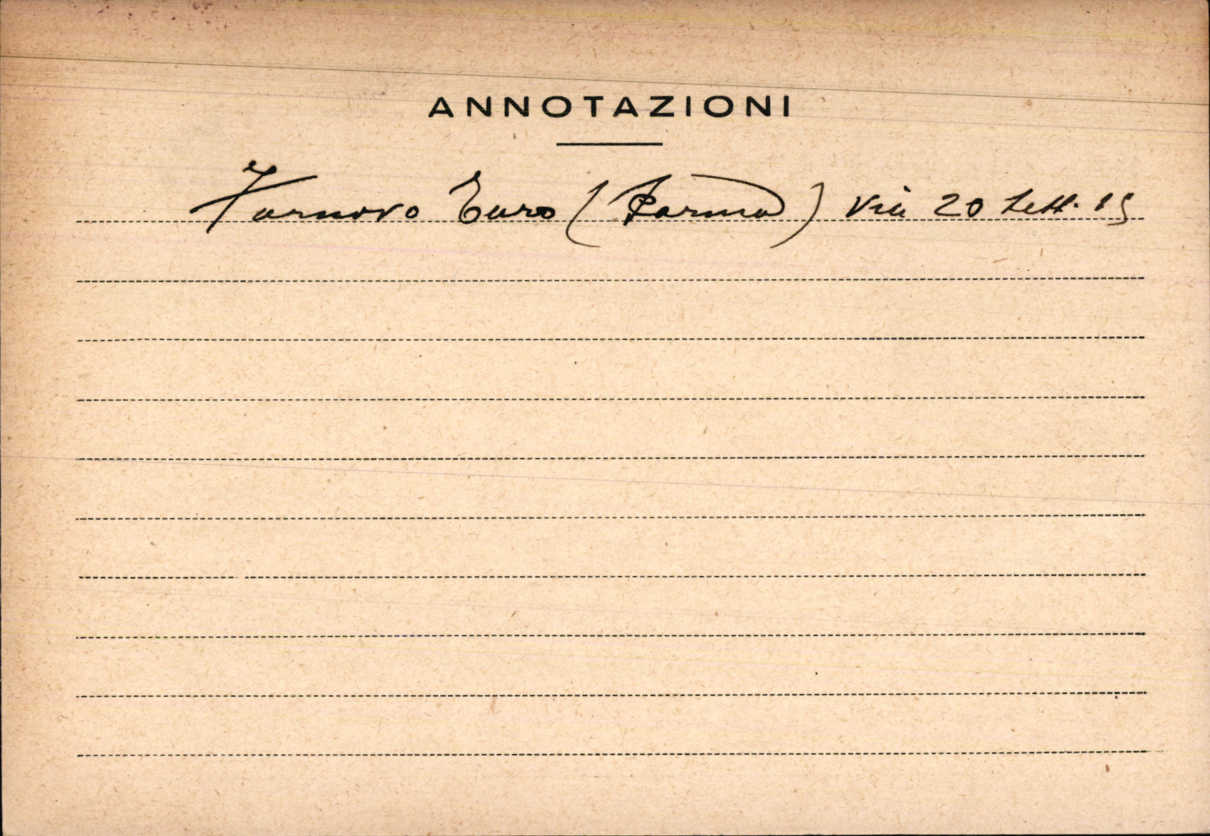 ANNOTAZIONI
Fornovo Taro (Parma) Via 20 Sett. 15